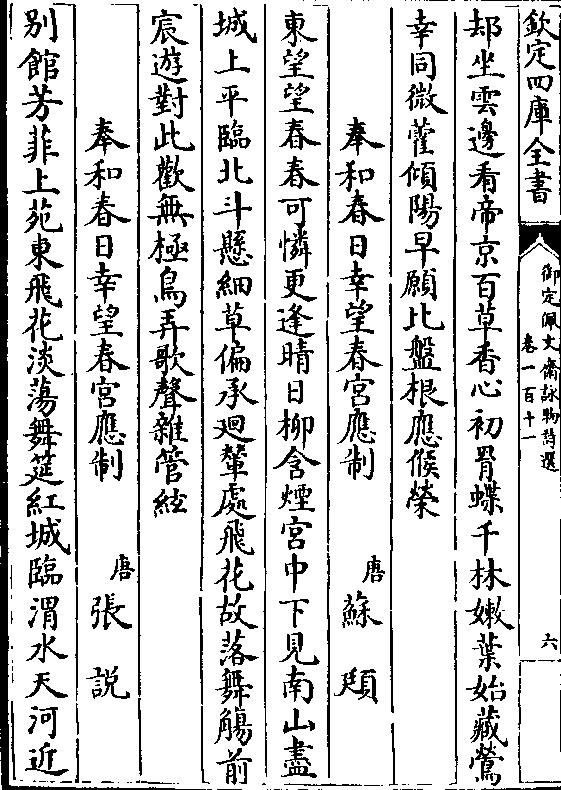 欽定四庫全書
御定佩文齋詠物詩選
卷一百十一
六
却坐雲邊看帝京百草香心初罥蝶千林嫩葉始藏鶯
幸同微藿傾陽早願比盤根應候榮
奉和春日幸望春宮應制 唐 蘇頲
東望望春春可憐更逢晴日柳含煙宮中下見南山盡
城上平臨北斗懸細草偏承廻輦處飛花故落舞觴前
宸遊對此歡無極鳥弄歌聲雜管絃
奉和春日幸望春宮應制 唐 張說
别館芳菲上苑東飛花淡蕩舞筵紅城臨渭水天河近